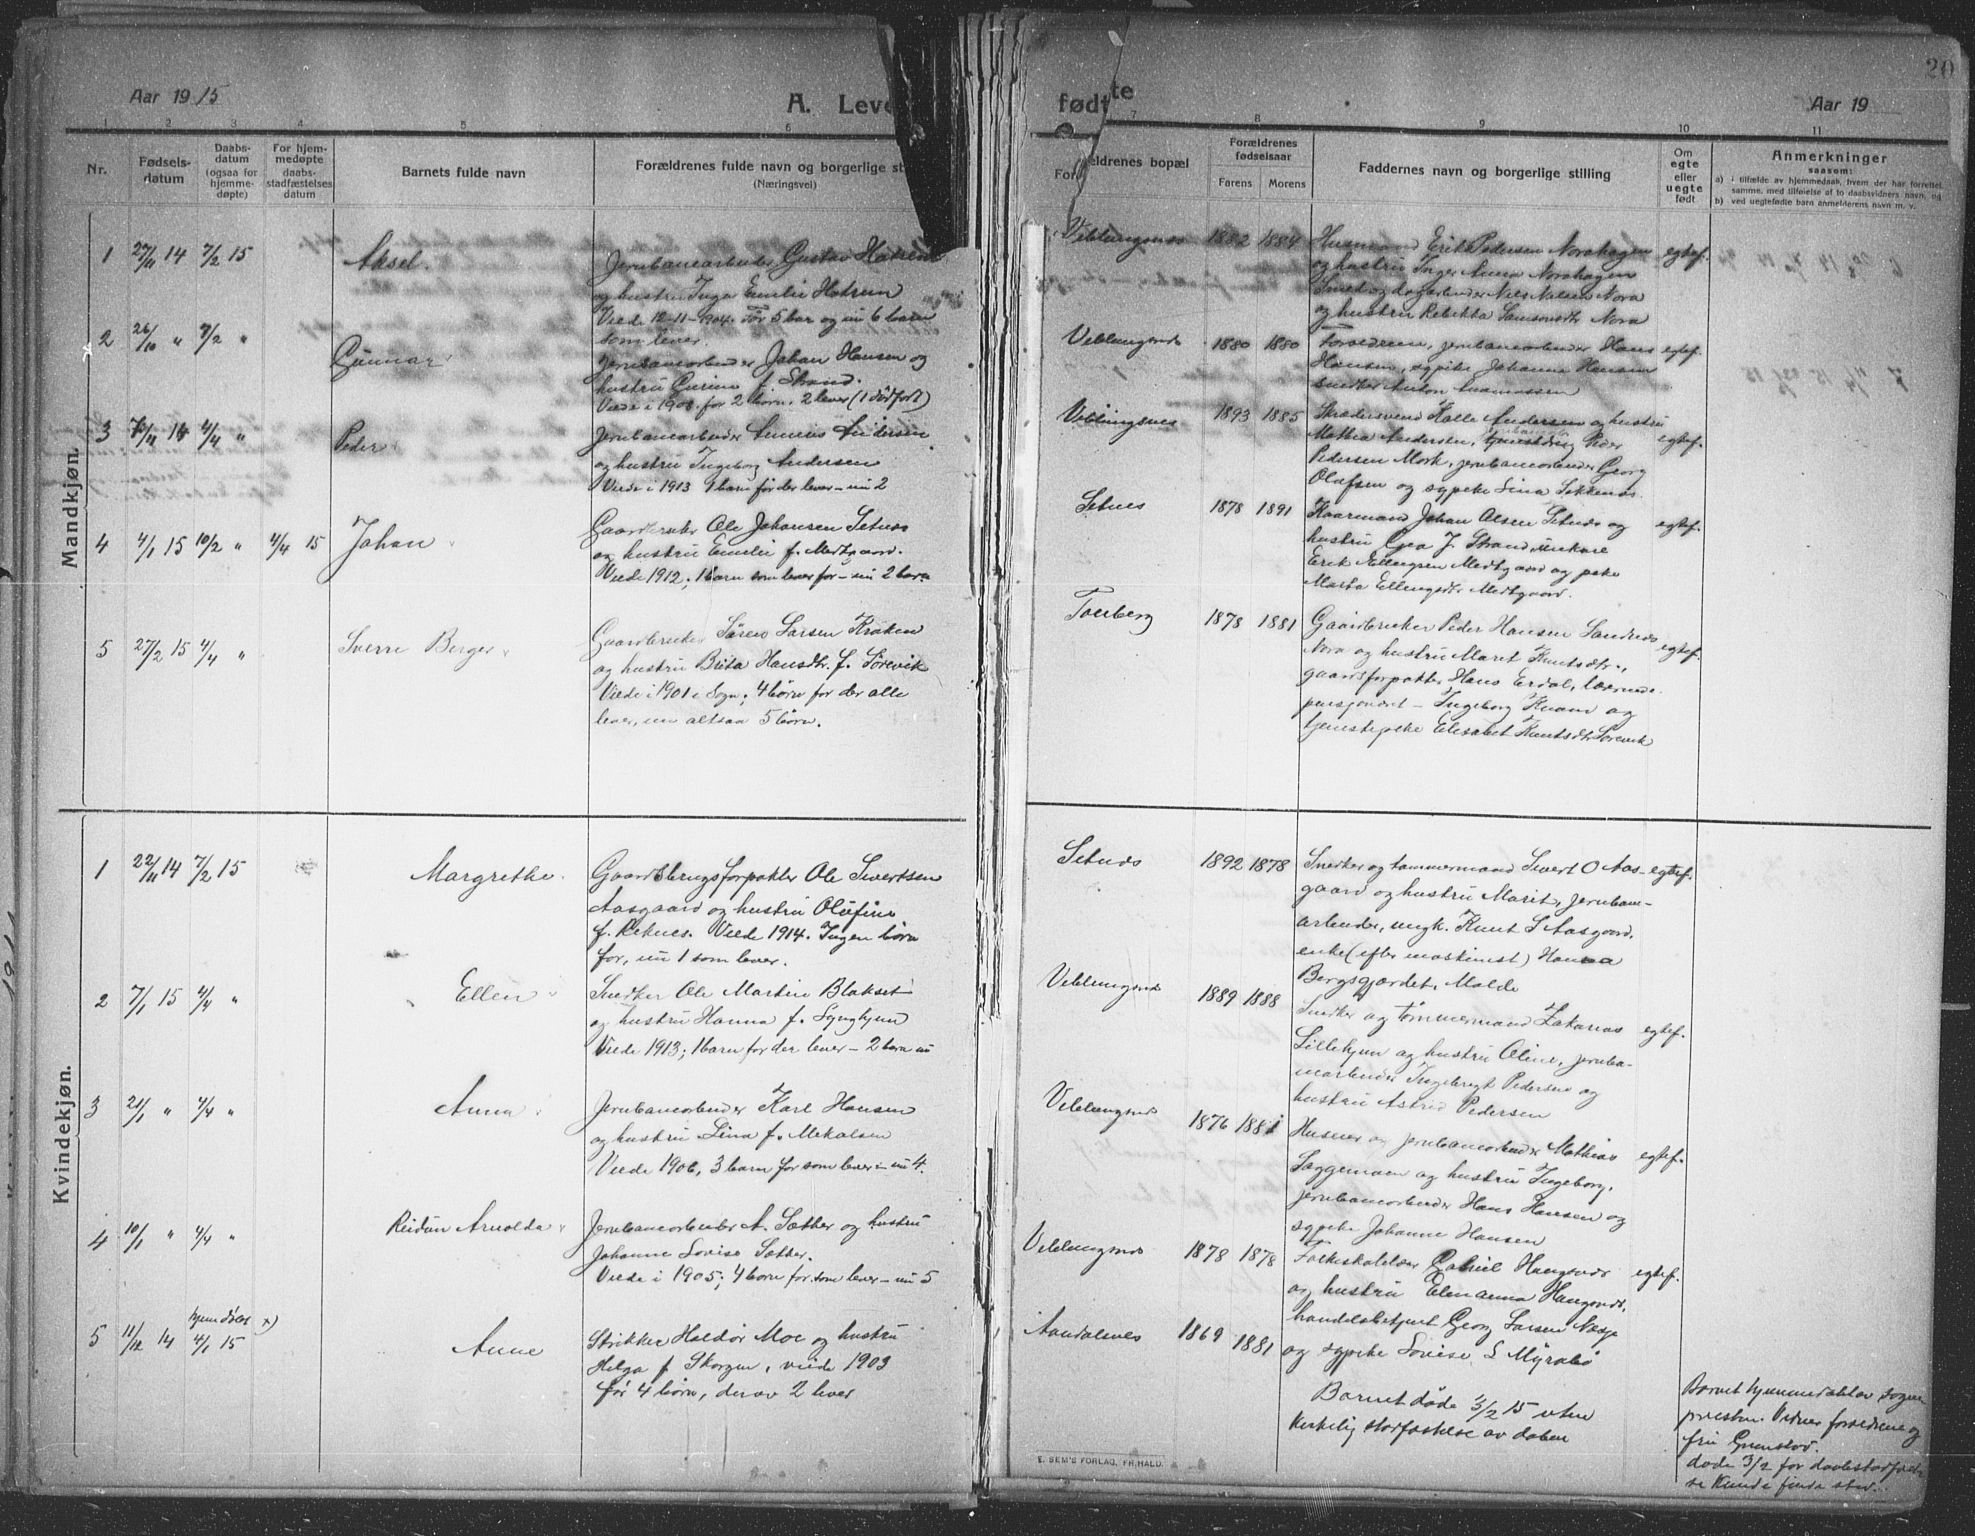 20
Aar 1915
A. Leve
fødte
Aar 19
1 2 3 4 5 6 7 8 9 10 11
Nr.
Fødsels-
datum
Daabs-
datum
(ogsaa for
hjemme-
døpte)
For hjem-
medøpte
daabs-
stadfæstelses
datum
Barnets fulde navn
Forældrenes fulde navn og borgerlige st
(Næringsvei)
For ældrenes bopæl
Forældrenes
fødselsaar
Farens Morens
Faddernes navn og borgerlige stilling
Om
egte
eller
uegte
født
Anmerkninger
saasom:
a) i tilfælde av hjemmedaab, hvem der har forrettet
samme, med tilføielse af to daabsvidners navn, og
b) ved uegtefødte barn anmelderens navn m. v.
Mandkjøn.
1 27/11 14 7/2 15 Aksel.
Jernbanearbeider Gustav
og hustru Inga Emelie Hatrem
Viede 12-11-1904. Før 5 bar og nu 6 barn
som lever.
Veblungsnes 1882 1884
Husmand Erik Pedersen Norahagen egtef.
og hustru Inger Anna Norahagen
Smed og dagarbeider Nils Nelsen Nora
og hustru Rebekka Samsonsdtr Nora
2 26/10 " 7/2 " Gunnar
Jernbanearbeider Johan Hansen og
hustru Gurine f. Strand.
Viede i 1908. for 2 børn. 2 lever (1 dødfødt)
Veblungsnes 1880 1880
Forældrene, jernbanearbeider Hans egtef.
Hansen, sypike Johanna Hansen
snedker Anton Asamossen
3 11 14 4/4 " Peder
Jernbanearbeider Andersen
og hustru Ingeborg Andersen
Viede i 1913 1 barn før der lever – nu 2
Veblungsnes 1893 1885
Skrædersvend Kalle Andersen og hustru
Mathea Andersen, tjenestedreng Peder egtef.
Pedersen Mork, jernbanearbeider Georg
Olafsen og sypike Lina Sekkenes.
4 4/1 15 10/2 " 4/4 15 Johan
Gaardbruker Ole Johansen Setnes
og hustru Emelie f. Medtgaard.
Viede 1912, 1 barn som lever før – nu 2 barn
Setnes 1878 1891
Kaarmand Johan Olsen Setnes og egtef.
hustru Gea J. Strand, ungkarl
Erik Ellingsen Medtgaard og pike
Marta Ellingsdtr Medtgaard.
5 27/2 15 4/4 " Sverre Berger
Gaardbruker Søren Larsen Kroken
og hustru Brita Hansdtr. f. Sørevik
Viede i 1901 i Sogn; 4 børn før der alle
lever, nu altsaa 5 børn.
Tonberg 1878 1881
Gaardbruker Peder Hansen Sandnes
Nora og hustru Maret Knutsdtr., egtef.
gaardsforpakter Hans Erdal, lærerinde
pensjoneret – Ingeborg Knam og
tjenestepike Elisabet Knutsdtr Sørevik
Kvindekjøn.
1 22/11 14 7/2 15 Margrethe.
Gaardbrugsforpakter Ole Sivertsen
Aasgaard og hustru Olufine
f. Reknes. Viede 1914. Ingen børn
før, nu 1 som lever.
Setnes 1892 1878
Snedker og tømmermand Sivert O Aas- egtef.
gaard og hustru Marit, jernban-
arbeider, ungk. Knut S Aasgaard,
enke (efter maskinist) Hanna
Bergsgjærdet, Molde
2 7/1 15 4/4 " Ellen
Snedker Ole Martin Blakset
og hustru Hanna f. Lyngheim
Viede 1913; 1 barn før der lever – 2 børn nu
Veblungsnes 1889 1888
Snedker og tømmermand Zakarias egtef.
Lillehjem og hustru Oline, jernba-
nearbeider Ingebrigt Pedersen og
hustru Astrid Pedersen
3 21/1 " 4/4 " Anna
Jernbanearbeider Karl Hansen
og hustru Lina f. Mekalsen
Viede 1906, 3 barn før som lever – nu 4.
Veblungsnes 1876 1881
Husmand og jernbanearbeider Mathias egtef.
Saggemoen og hustru Ingeborg,
jernbanearbeider Hans Hansen og
sypike Johanne Hansen
4 10/1 " 4/4 " Reidun Arnolda
Jernbanearbeider A. Sæther og hustru
Johanne Lovise Sæther.
Viede i 1905; 4 børn før som lever – nu 5
Veblungsnes 1878 1878
Folkeskolelærer Gabriel Haugsnes egtef.
og hustru Elen Anna Haugsnes,
handelsbetjent Georg Larsen Næsje
og sypike Lovise L Myrabø
5 11/12 14 hjemdøbt x) 4/1 15 Anne
Strikker Haldor Moe og hustru
Helga f. Skorgen, viede 1903
før 4 børn, derav 2 lever
Aandalsnes 1869 1881
Barnet døde 3/2 15 uten
kirkelig stadfæstelse av daaben
Barnet hjemmedøbt av sogne
presten. Vidner forældrene og
fru Grønstad.
døde 3/2 før daabsstadfæst
se kunde finde sted.
E. SEM'S FORLAG, FR.HALD.